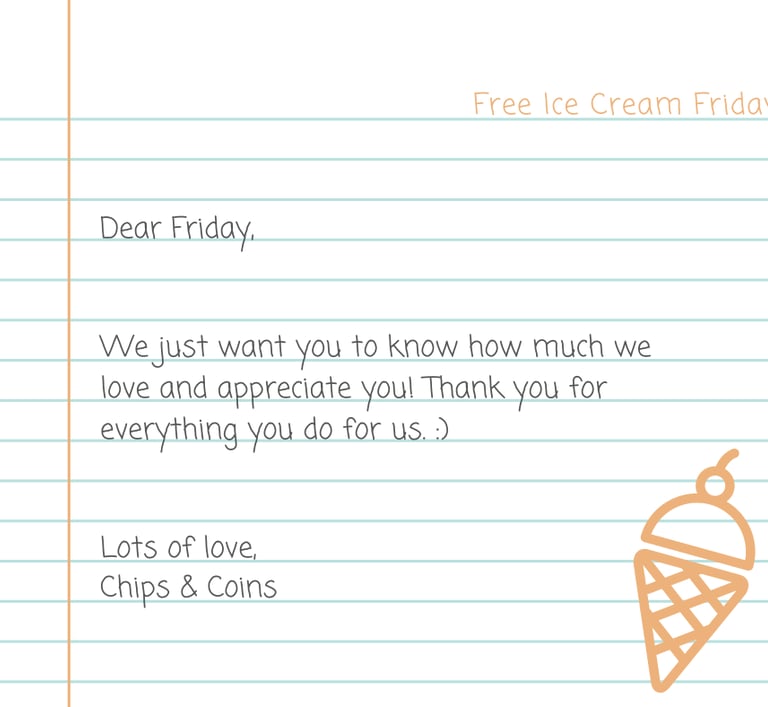 Free Ice Cream Friday
Dear Friday,
We just want you to know how much we
love and appreciate you! Thank you for
everything you do for us. :)
Lots of love,
Chips & Coins